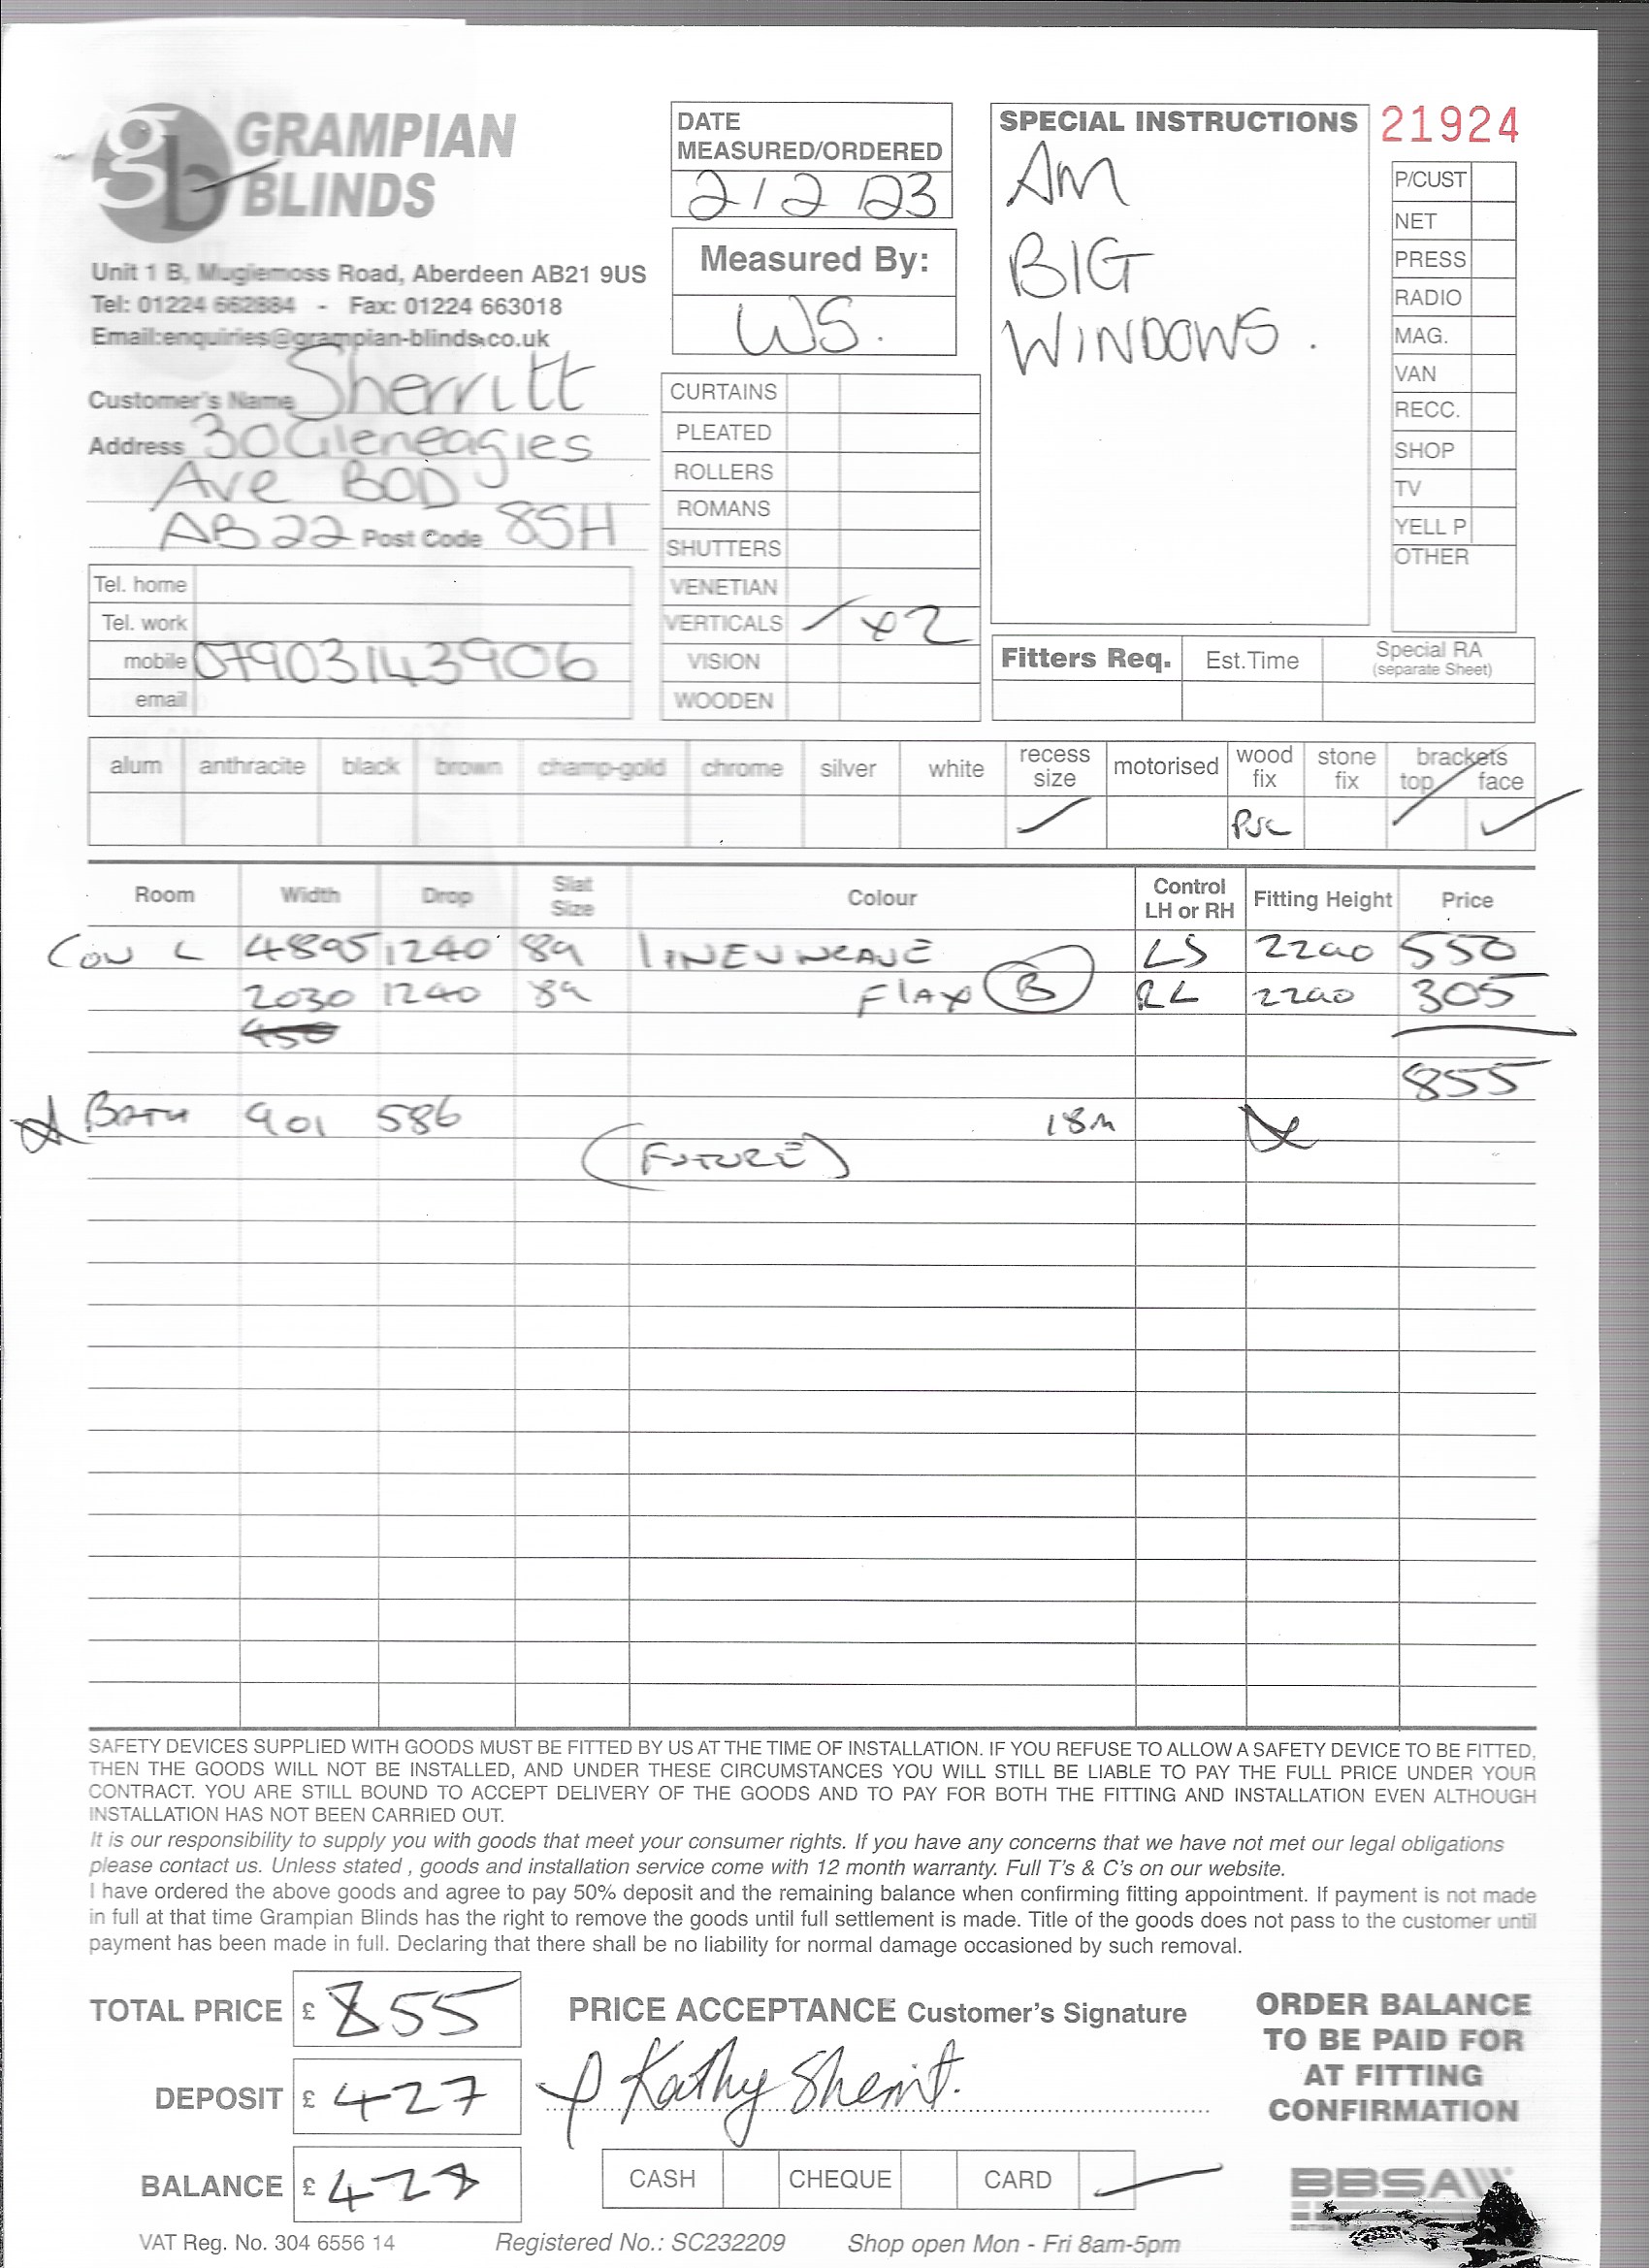 GRAMPIAN
BLINDS
Unit 1 B, Mugiemoss Road, Aberdeen AB21 9US
Tel: 01224 662884 - Fax: 01224 663018
Email:enquiries@grampian-blinds.co.uk
Customer's Name Sherritt
Address 30 Gleneagles
Ave BOD
AB22 Post Code 8SH
Tel. home
Tel. work
mobile 07903143906
email
DATE
MEASURED/ORDERED
2/2/23
Measured By:
WS.
CURTAINS
PLEATED
ROLLERS
ROMANS
SHUTTERS
VENETIAN
VERTICALS x2
VISION
WOODEN
SPECIAL INSTRUCTIONS
AM
BIG
WINDOWS.
21924
P/CUST
NET
PRESS
RADIO
MAG.
VAN
RECC.
SHOP
TV
YELL P
OTHER
Fitters Req. Est.Time Special RA
(separate Sheet)
alum anthracite black brown champ-gold chrome silver white recess size motorised wood fix stone fix brackets top face
PVC
Room Width Drop Slat Size Colour Control LH or RH Fitting Height Price
CON L 4895 1240 89 LINENWEAVE LS 2200 550
2030 1240 89 FLAX B RL 2200 305
450
855
BATH 901 586 18m
(FUTURE)
SAFETY DEVICES SUPPLIED WITH GOODS MUST BE FITTED BY US AT THE TIME OF INSTALLATION. IF YOU REFUSE TO ALLOW A SAFETY DEVICE TO BE FITTED,
THEN THE GOODS WILL NOT BE INSTALLED, AND UNDER THESE CIRCUMSTANCES YOU WILL STILL BE LIABLE TO PAY THE FULL PRICE UNDER YOUR
CONTRACT. YOU ARE STILL BOUND TO ACCEPT DELIVERY OF THE GOODS AND TO PAY FOR BOTH THE FITTING AND INSTALLATION EVEN ALTHOUGH
INSTALLATION HAS NOT BEEN CARRIED OUT.
It is our responsibility to supply you with goods that meet your consumer rights. If you have any concerns that we have not met our legal obligations
please contact us. Unless stated , goods and installation service come with 12 month warranty. Full T's & C's on our website.
I have ordered the above goods and agree to pay 50% deposit and the remaining balance when confirming fitting appointment. If payment is not made
in full at that time Grampian Blinds has the right to remove the goods until full settlement is made. Title of the goods does not pass to the customer until
payment has been made in full. Declaring that there shall be no liability for normal damage occasioned by such removal.
TOTAL PRICE £ 855
DEPOSIT £ 427
BALANCE £ 428
PRICE ACCEPTANCE Customer's Signature
Kathy Sherrit.
CASH CHEQUE CARD
ORDER BALANCE
TO BE PAID FOR
AT FITTING
CONFIRMATION
BBSA
VAT Reg. No. 304 6556 14 Registered No.: SC232209 Shop open Mon - Fri 8am-5pm